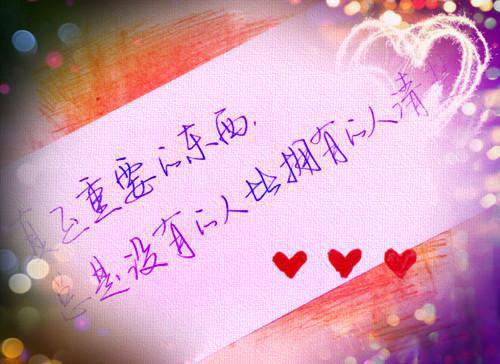 真正重要的东西,
总是没有的人比拥有的人清